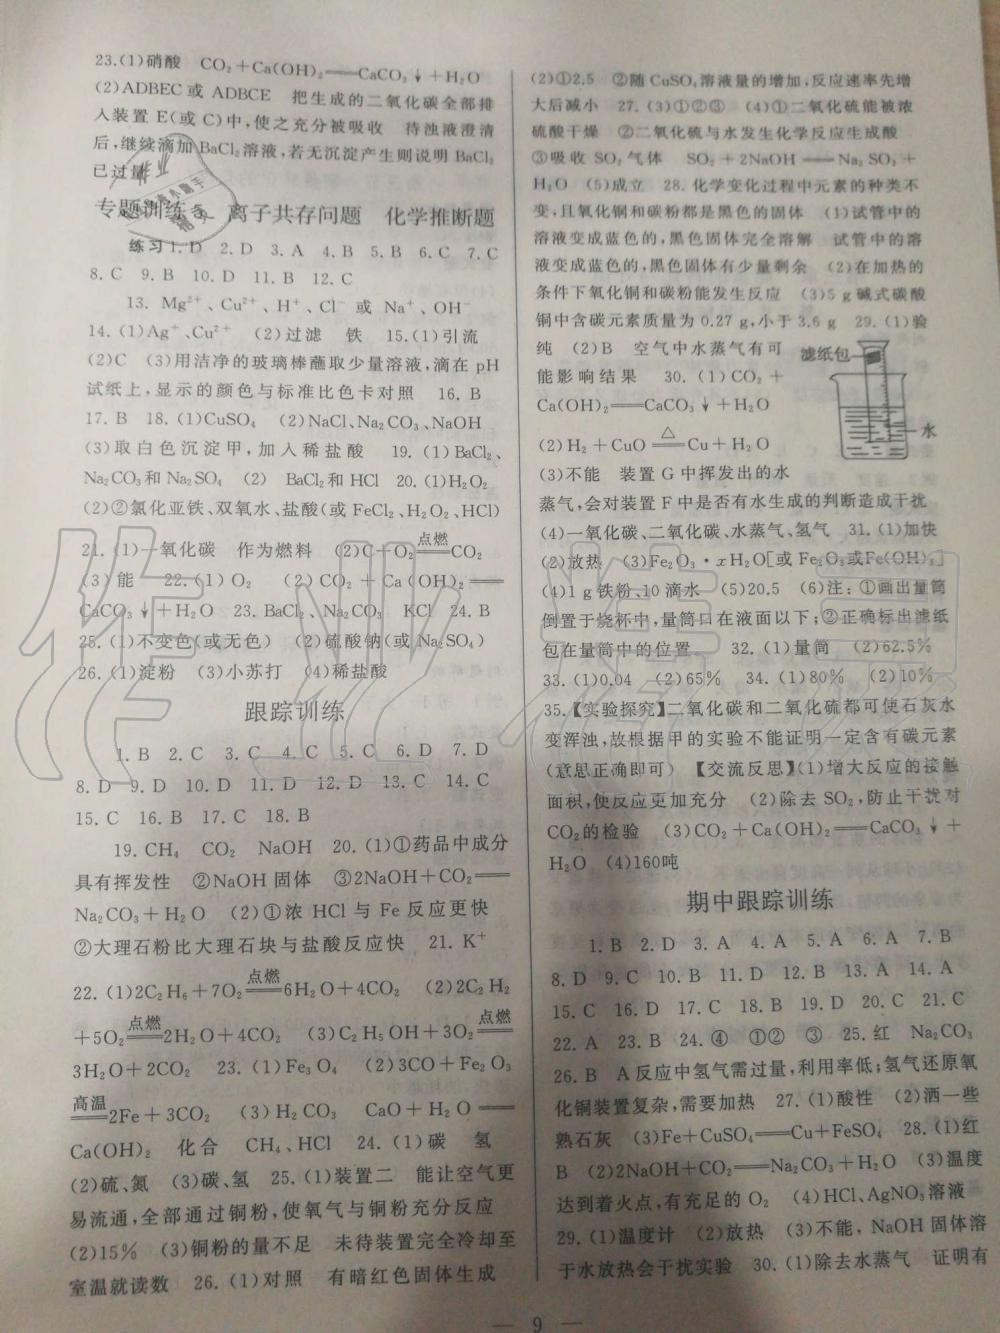 23.(1)硝酸　CO₂+Ca(OH)₂══CaCO₃↓+H₂O
(2)ADBEC或 ADBCE　把生成的二氧化碳全部排
入装置 E(或 C)中,使之充分被吸收　待浊液澄清
后,继续滴加BaCl₂溶液,若无沉淀产生则说明 BaCl₂
已过量
专题训练　离子共存问题　化学推断题
练习 1. D　2. D　3. A　4. B　5. B　6. C　7. C
8. C　9. B　10. D　11. B　12. C
13. Mg²⁺、Cu²⁺、H⁺、Cl⁻ 或 Na⁺、OH⁻
14. (1)Ag⁺、Cu²⁺　(2)过滤　铁　15. (1)引流
(2)C　(3)用洁净的玻璃棒蘸取少量溶液,滴在 pH
试纸上,显示的颜色与标准比色卡对照　16. B
17. B　18. (1)CuSO₄　(2)NaCl、Na₂CO₃、NaOH
(3)取白色沉淀甲,加入稀盐酸　19. (1)BaCl₂、
Na₂CO₃和 Na₂SO₄　(2)　BaCl₂和HCl　20. (1)H₂O₂
(2)②氯化亚铁、双氧水、盐酸(或 FeCl₂、H₂O₂、HCl)
21. (1)一氧化碳　作为燃料　(2)C+O₂ 点燃══ CO₂
(3)能　22. (1)O₂　(2)CO₂+Ca(OH)₂══
CaCO₃↓+H₂O　23. BaCl₂、Na₂CO₃　KCl　24. B
25. (1)不变色(或无色)　(2)硫酸钠(或 Na₂SO₄)
26. (1)淀粉　(3)小苏打　(4)稀盐酸
跟踪训练
1. B　2. C　3. C　4. C　5. C　6. D　7. D
8. D　9. D　10. D　11. A　12. D　13. C　14. C
15. C　16. B　17. C　18. B
19. CH₄　CO₂　NaOH　20. (1)①药品中成分
具有挥发性　②NaOH 固体　③2NaOH+CO₂══
Na₂CO₃+H₂O　(2)①浓 HCl 与 Fe 反应更快
②大理石粉比大理石块与盐酸反应快　21. K⁺
22. (1)2C₂H₆+7O₂ 点燃══ 6H₂O+4CO₂　(2)2C₂H₂
+5O₂ 点燃══ 2H₂O+4CO₂　(3)C₂H₅OH+3O₂ 点燃══
3H₂O+2CO₂　23. (1)Fe₃O₄　(2)3CO+Fe₂O₃
高温══ 2Fe+3CO₂　(3)H₂CO₃　CaO+H₂O══
Ca(OH)₂　化合　CH₄、HCl　24. (1)碳　氢
(2)硫、氮　(3)碳、氢　25. (1)装置二　能让空气更
易流通,全部通过铜粉,使氧气与铜粉充分反应
(2)15%　(3)铜粉的量不足　未待装置完全冷却至
室温就读数　26. (1)对照　有暗红色固体生成
(2)①2.5　②随 CuSO₄溶液量的增加,反应速率先增
大后减小　27. (3)①②③　(4)①二氧化硫能被浓
硫酸干燥　②二氧化硫与水发生化学反应生成酸
③吸收 SO₂ 气体　SO₂+2NaOH══Na₂SO₃+
H₂O　(5)成立　28. 化学变化过程中元素的种类不
变,且氧化铜和碳粉都是黑色的固体　(1)试管中的
溶液变成蓝色的,黑色固体完全溶解　试管中的溶
液变成蓝色的,黑色固体有少量剩余　(2)在加热的
条件下氧化铜和碳粉能发生反应　(3)5 g 碱式碳酸
铜中含碳元素质量为 0.27 g,小于 3.6 g　29. (1)验
纯　(2)B　空气中水蒸气有可
能影响结果　30. (1)CO₂+
Ca(OH)₂══CaCO₃↓+H₂O
(2)H₂+CuO △══ Cu+H₂O
(3)不能　装置 G 中挥发出的水
滤纸包
水
蒸气,会对装置 F 中是否有水生成的判断造成干扰
(4)一氧化碳、二氧化碳、水蒸气、氢气　31. (1)加快
(2)放热　(3)Fe₂O₃·xH₂O[或 Fe₂O₃或Fe(OH)₃]
(4)1 g 铁粉、10 滴水　(5)20.5　(6)注:①画出量筒
倒置于烧杯中,量筒口在液面以下;②正确标出滤纸
包在量筒中的位置　32. (1)量筒　(2)62.5%
33. (1)0.04　(2)65%　34. (1)80%　(2)10%
35.【实验探究】二氧化碳和二氧化硫都可使石灰水
变浑浊,故根据甲的实验不能证明一定含有碳元素
(意思正确即可)【交流反思】(1)增大反应的接触
面积,使反应更加充分　(2)除去SO₂,防止干扰对
CO₂的检验　(3)CO₂+Ca(OH)₂══CaCO₃↓+
H₂O　(4)160吨
期中跟踪训练
1. B　2. D　3. A　4. A　5. A　6. A　7. B
8. D　9. C　10. B　11. D　12. B　13. A　14. A
15. C　16. D　17. C　18. B　19. D　20. C　21. C
22. A　23. B　24. ④　①②　③　25. 红　Na₂CO₃
26. B　A 反应中氢气需过量,利用率低;氢气还原氧
化铜装置复杂,需要加热　27. (1)酸性　(2)洒一些
熟石灰　(3)Fe+CuSO₄══Cu+FeSO₄　28. (1)红
B　(2)2NaOH+CO₂══Na₂CO₃+H₂O　(3)温度
达到着火点,有充足的 O₂　(4)HCl、AgNO₃溶液
29. (1)温度计　(2)放热　(3)不能,NaOH 固体溶
于水放热会干扰实验　30. (1)除去水蒸气　证明有
— 9 —